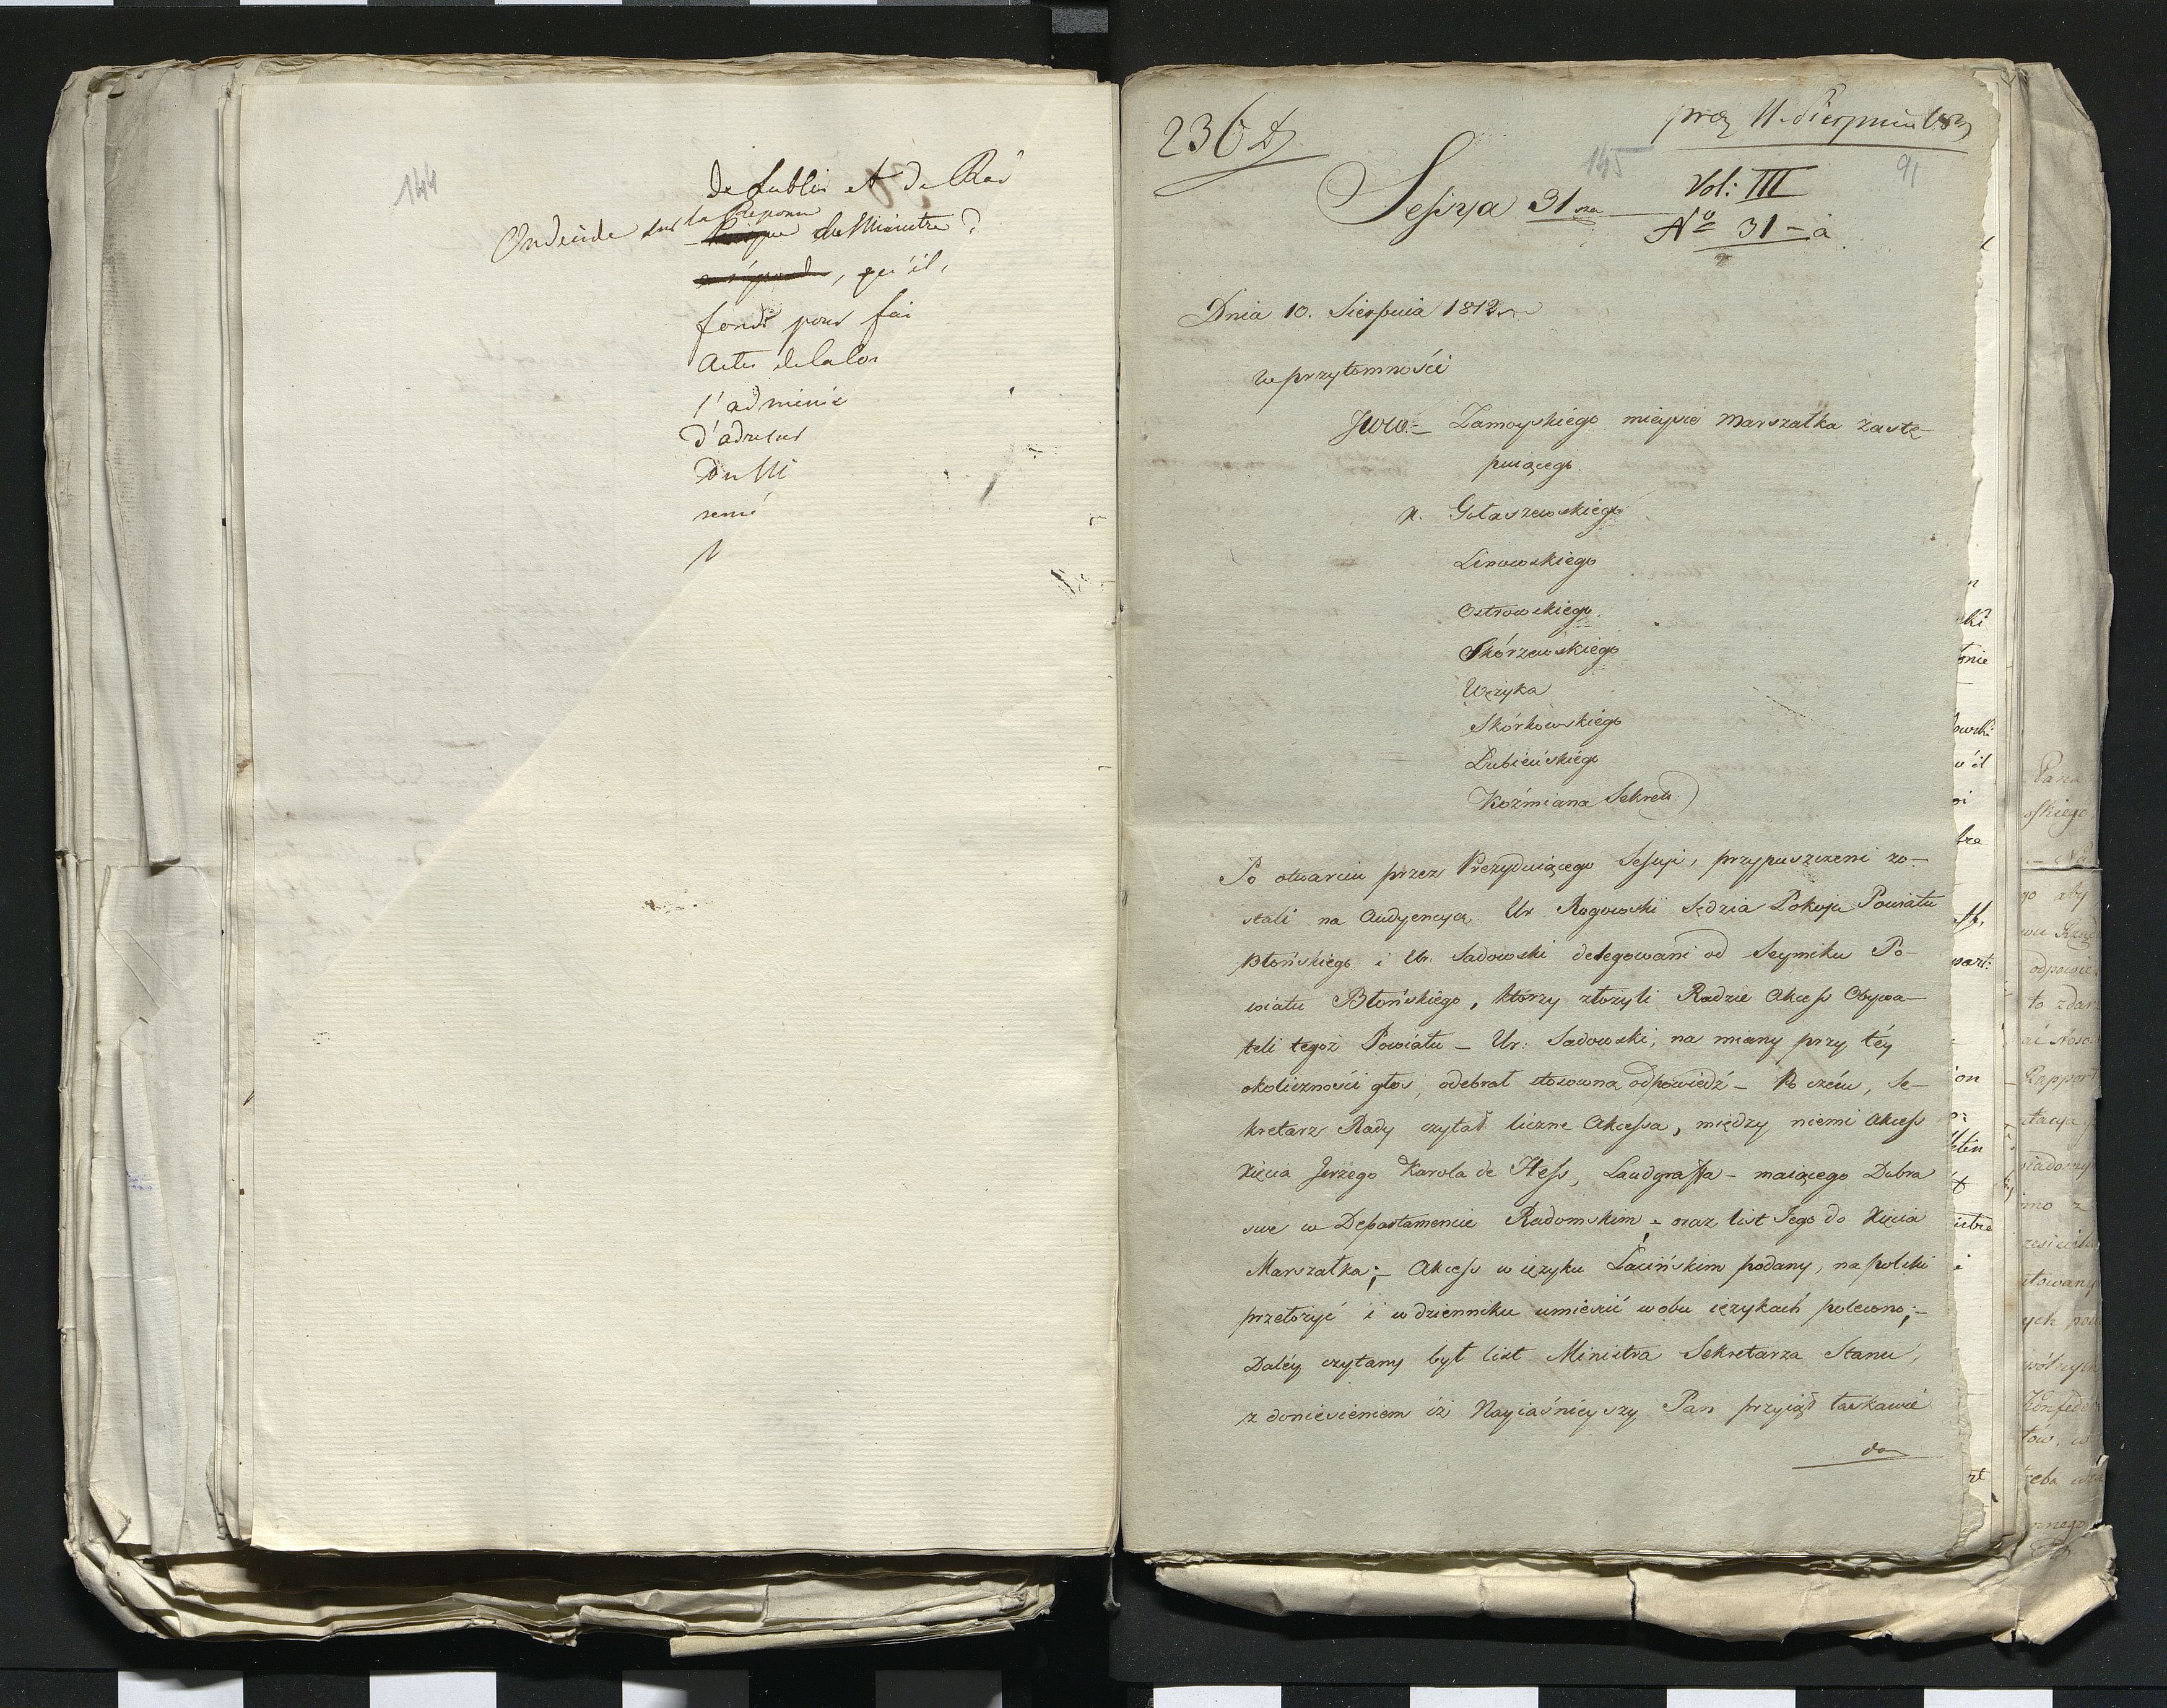 144
de Lublin et de Rad
la Reponse
On decide sur du Ministre
, qu'il
fonds pour fai
Actes de la Con
l'adminis
d'adresser
Du Mi
remi
236
praes 11. Sierpnia
145
91
Vol: III
Sessya 31sza
No 31 - a
Dnia 10. Sierpnia 1812
w przytomności
JWW:- Zamoyskiégo mieysce Marszałka zastę-
puiącego
n. Gołaszewskiégo
Linowskiégo
Ostrowskiégo
Skórzewskiégo
Wężyka
Skórkowskiégo
Łubieńskiégo
Koźmiana Sekret:
Po otwarciu przez Prezyduiącego Sessyi, przypuszczeni zo-
stali na Audyencyą Ur Rogowski Sędzia Pokoju Powiatu
Błońskiego i Ur. Sadowski delegowani od Seymiku Po-
wiatu Błońskiégo, którzy złożyli Radzie Akcess Obywa-
teli tegoż Powiatu - Ur: Sadowski, na miany przy téy
okoliczności głos, odebrał stosowną odpowiedź - Po czém, Se-
kretarz Rady czytał liczne Akcessa, między niemi Akcess
Xięcia Jerzego Karola de Hess, Landgraffa - maiącego Dobra
swe w Departamencie Radomskim - oraz list Jego do Xięcia
Marszałka; - Akcess w ięzyku Łacińskim podany, na polski
przełożyć i w dzienniku umieścić w obu ięzykach polecono; -
Daléy czytany był list Ministra Sekretarza Stanu,
z doniesieniem iż Nayiaśnieyszy Pan przyiął łaskawie
do